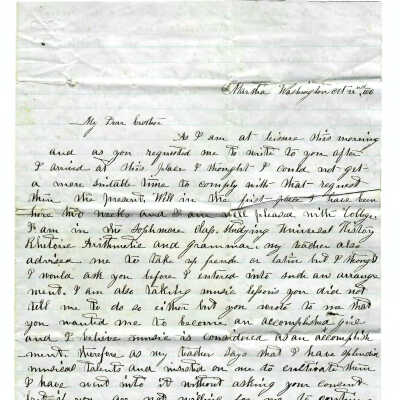 Martha Washington Oct 22nd, 60
My Dear brother
As I am at leisure this morning
and as you requested me to write to you after
I arrived at this place I thought I could not get
a more suitable time to comply with that request
than the present, Well in the first place I have been
here two weeks and I am well pleased with College
I am in the Sophmore Class. Studying Universal History
Rhetoric Arithmetic and grammar my teacher also
advised me to take up french or latin but I thought
I would ask you before I entered into such an arrange
ment. I am also taking music lessons you did not
tell me to do so either but you wrote to me that
you wanted me to become an accomplished girl
and I believe music is considered as an accomplish
ment. therefore as my teacher says that I have splendid
musical talents and insisted on me to cultivate them
I have went into it without asking your consent
but if you are not willing for me to continue